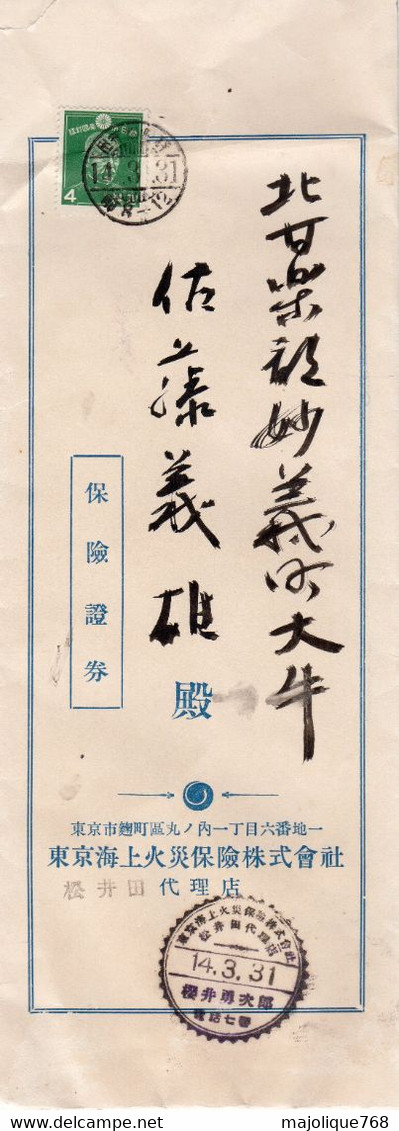 北甘楽郡妙義町大牛
佐藤義雄
殿
保險證券
4
14.3.31
東京市麴町區丸ノ內一丁目六番地一
東京海上火災保險株式會社
松井田代理店
東京海上火災保險株式會社
松井田代理店
14.3.31
櫻井勇次郎
電話七番
majolique768